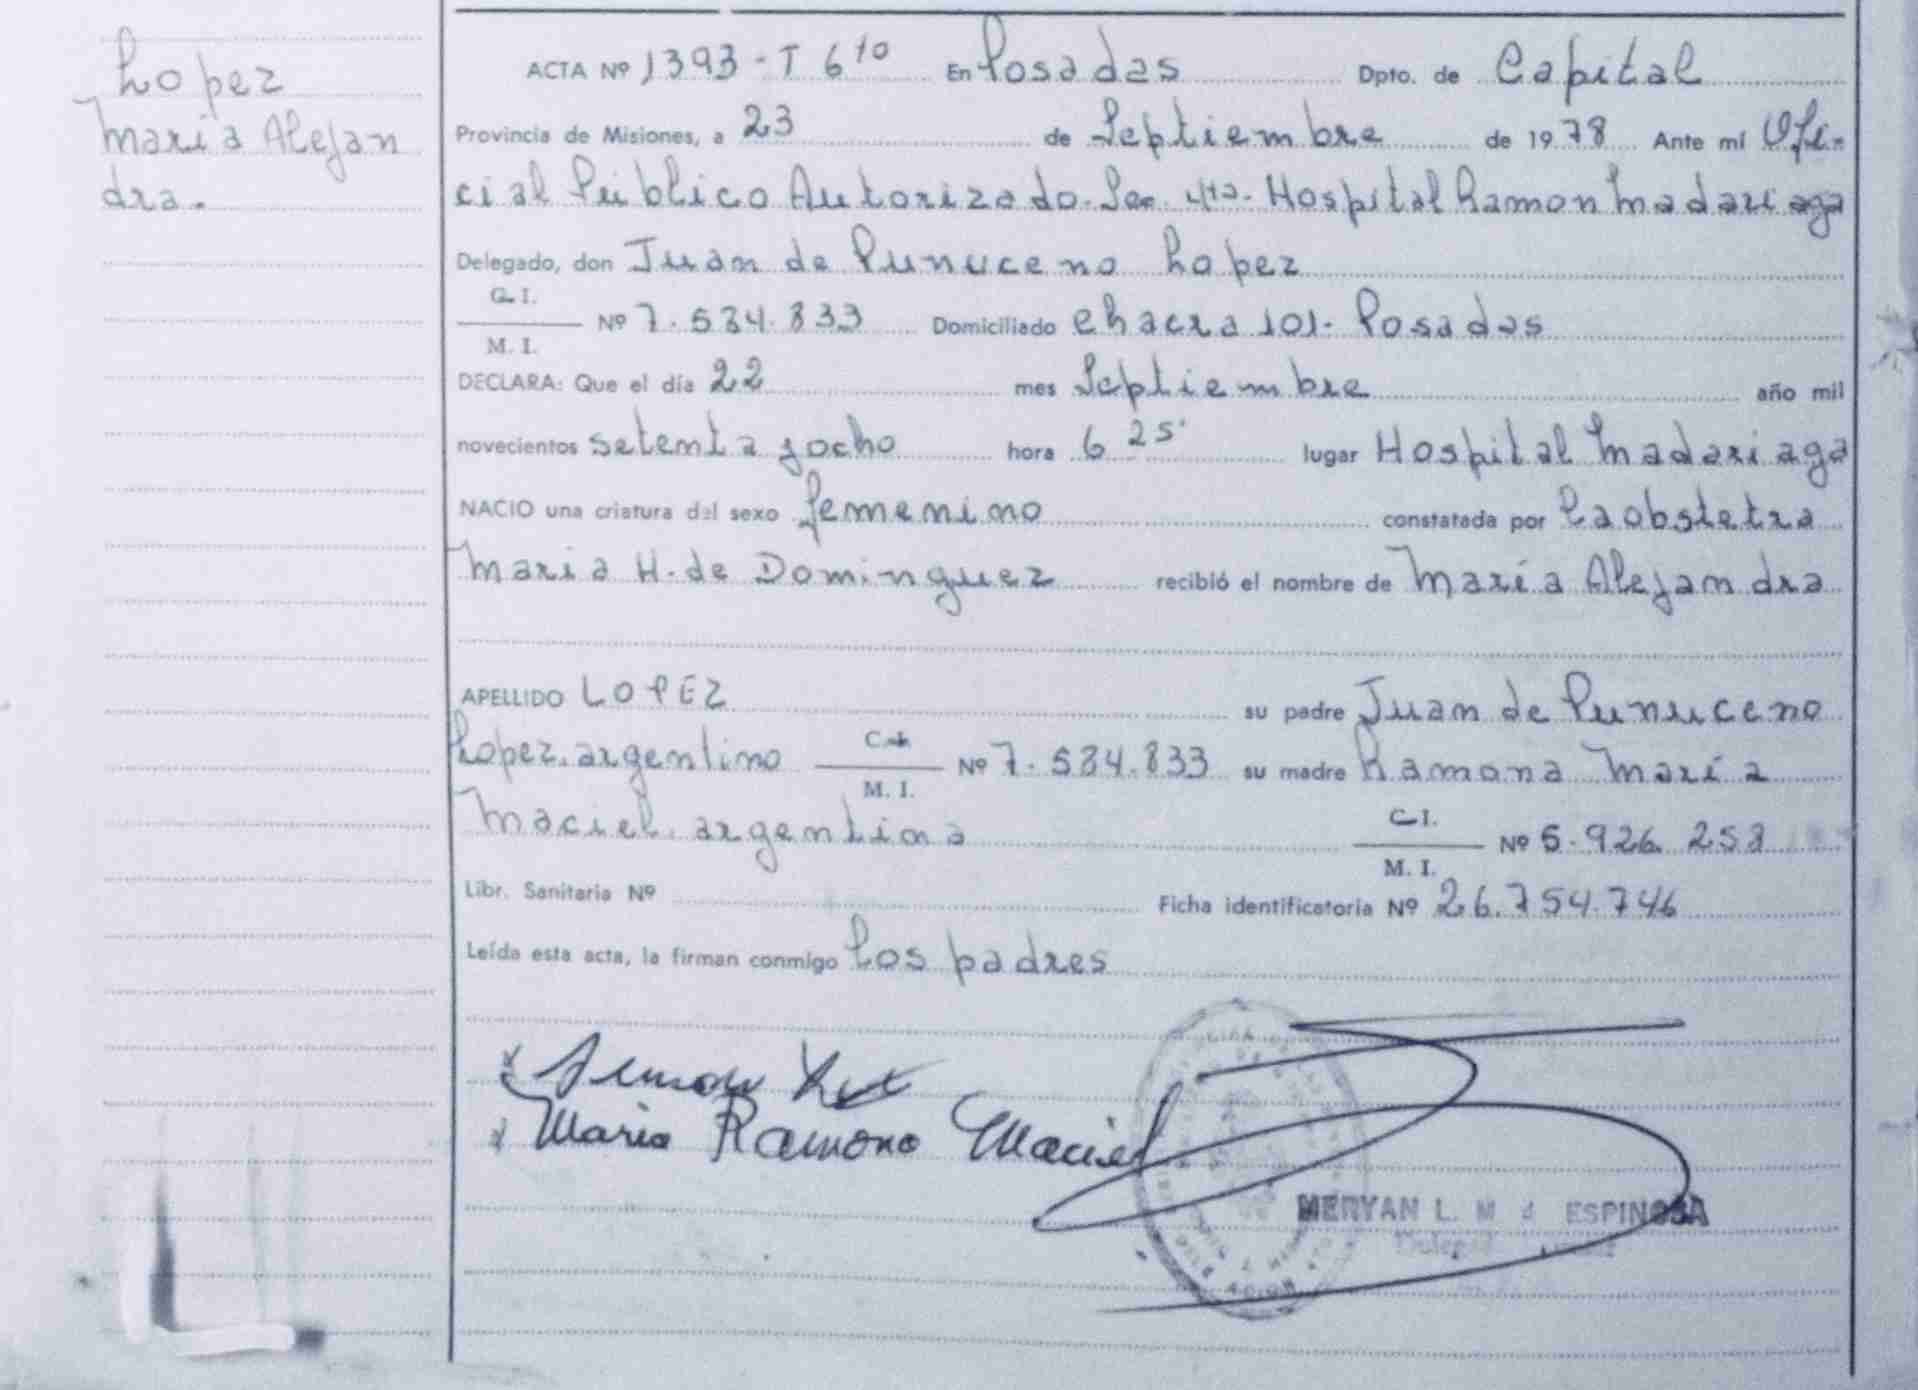 Lopez
Maria Alejan
dra.
ACTA Nº 1393-T 6to En Posadas Dpto. de Capital
Provincia de Misiones, a 23 de Septiembre de 1978 Ante mí Ofi-
cial Público Autorizado. Sec. 4ta. Hospital Ramon Madariaga
Delegado, don Juan de Punuceno Lopez
C. I.
M. I. Nº 7.534.833 Domiciliado Chacra 101- Posadas
DECLARA: Que el día 22 mes Septiembre año mil
novecientos setenta y ocho hora 6 25' lugar Hospital Madariaga
NACIO una criatura del sexo femenino constatada por La obstetra
Maria H. de Dominguez recibió el nombre de María Alejandra
APELLIDO LOPEZ su padre Juan de Punuceno
Lopez. argentino C. I.
M. I. Nº 7.534.833 su madre Ramona María
Maciel. argentina C. I.
M. I. Nº 5.926.253
Libr. Sanitaria Nº Ficha identificatoria Nº 26.754.746
Leída esta acta, la firman conmigo Los padres
Maria Ramona Maciel
MERYAN L. M d ESPINOSA